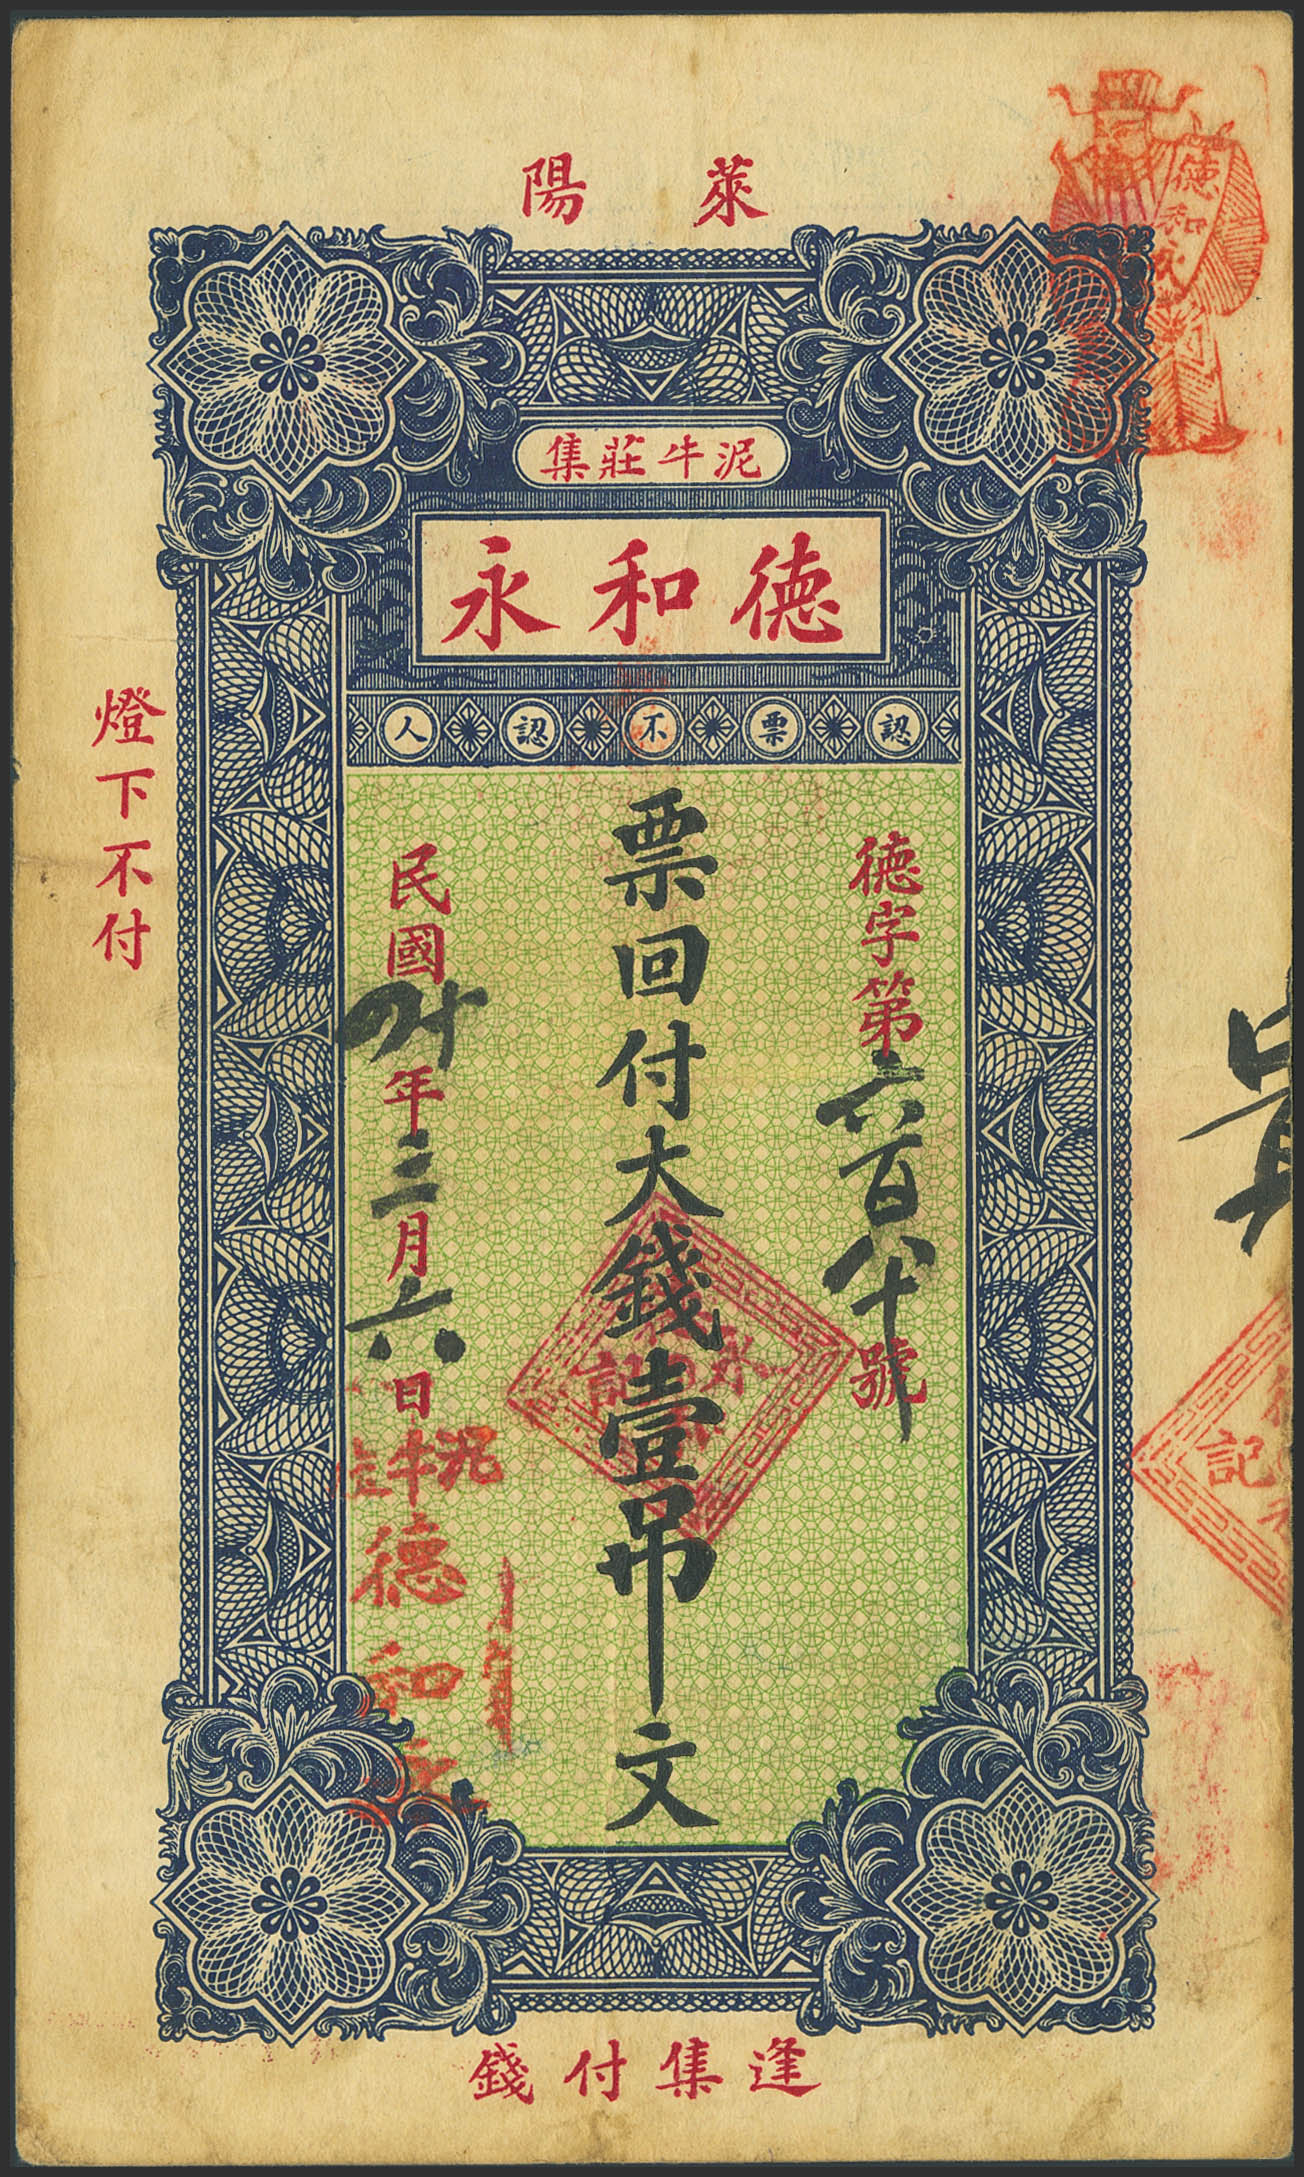 萊陽
泥牛莊集
德和永
認票不認人
德字第六百八十號
票回付大錢壹吊文
民國
年三月六日
燈下不付
逢集付錢
德和
泥牛莊
德和永
記